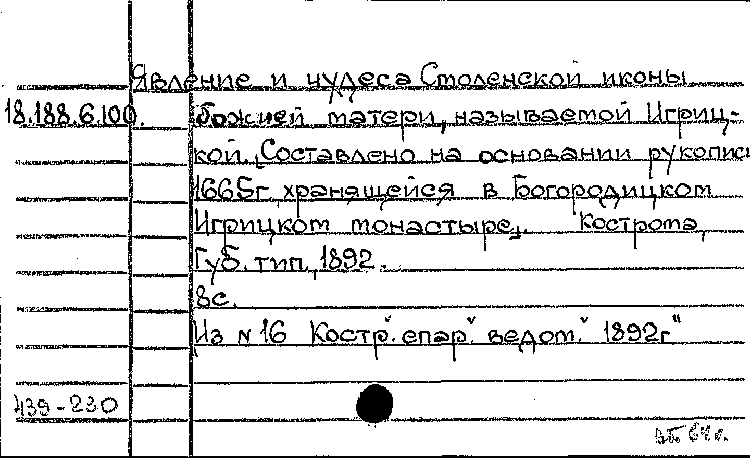 Явление и чудеса Смоленской иконы
18.188.6.100. Божией матери, называемой Игриц-
кой. „Составлено на основании рукописи
1665г. хранящейся в Богородицком
Игрицком монастыре„. Кострома,
Губ. тип., 1892.
8с.
Из №16 Костр. епар. ведом. 1892г"
439-230